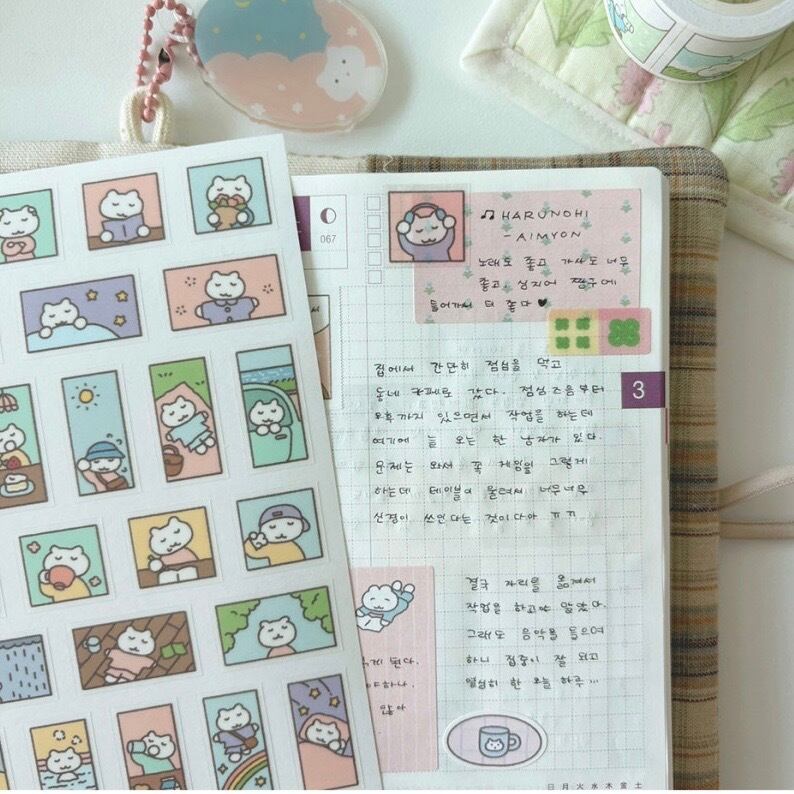 067
♫ HARUNOHI
-AIMYON
노래도 좋고 가사도 너무
좋고 심지어 짱구에
들어가서 더 좋다 ♥
집에서 간단히 점심을 먹고
동네 카페로 갔다. 점심즈음부터
오후까지 있으면서 작업을 하는데
여기에 늘 오는 한 남자가 있다.
문제는 와서 꼭 게임을 그렇게
하는데 테이블이 울려서 너무너무
신경이 쓰인다는 것이다아 ㅠㅠ
3
결국 자리를 옮겨서
작업을 하고야 말았다.
그래도 음악을 들으며
하니 집중이 잘 되고
열심히 한 오늘 하루...
게 된다.
야하나.
많아
日 月 火 水 木 金 土